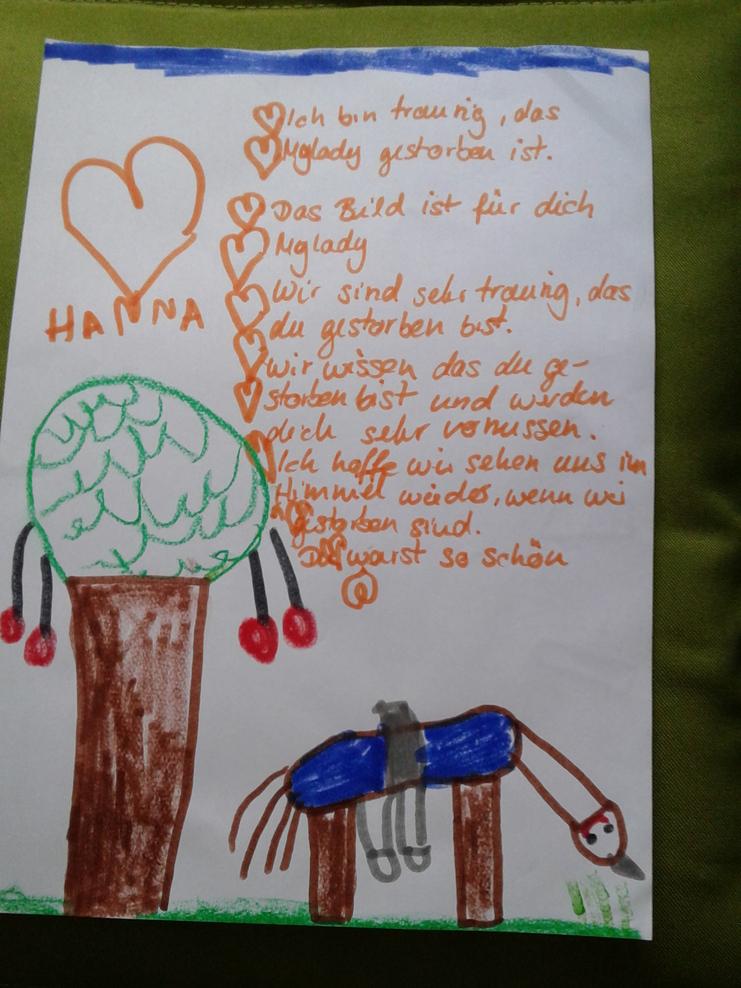 Ich bin traurig, das
Mylady gestorben ist.
Das Bild ist für dich
Mylady
HANNA
Wir sind sehr traurig, das
du gestorben bist.
wir wissen das du ge-
storben bist und werden
dich sehr vermissen.
Ich hoffe wir sehen uns im
Himmel wieder, wenn wir
gestorben sind.
Du warst so schön